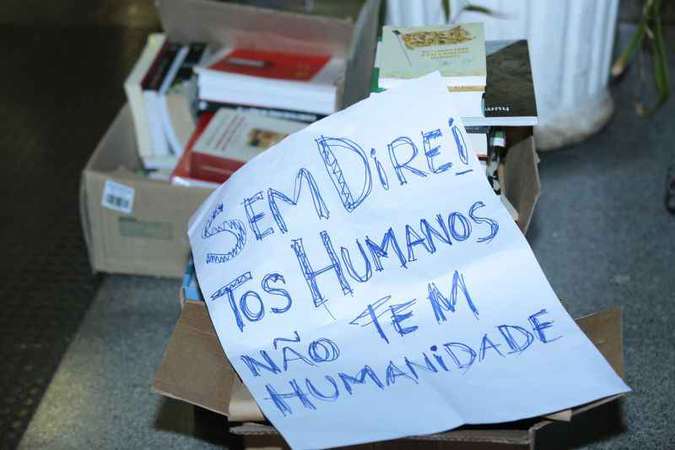 SEM DIREI
TOS HUMANOS
NÃO TEM
HUMANIDADE
hum